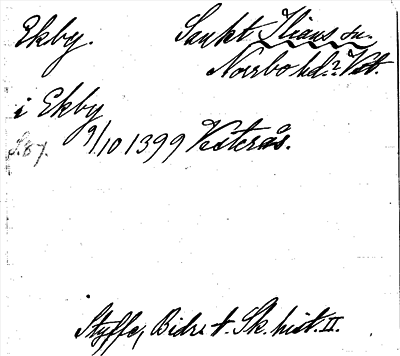 Ekby. Sankt Ilians sn.
Norrbo hd.? Vstm.
i Ekby
S. 67. 9/10 1399 Vesterås.
Styffe, Bidr. t. Sk. hist. II.